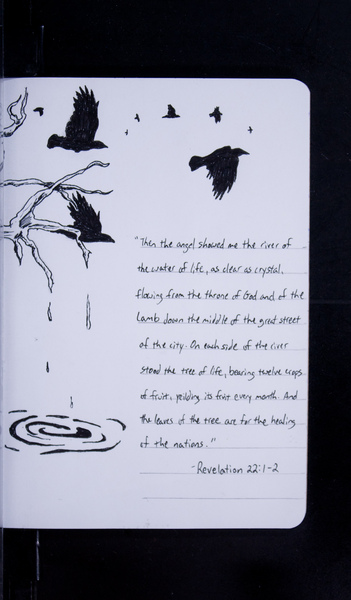 "Then the angel showed me the river of
the water of life, as clear as crystal,
flowing from the throne of God and of the
Lamb down the middle of the great street
of the city. On each side of the river
stood the tree of life, bearing twelve crops
of fruit, yeilding its fruit every month. And
the leaves of the tree are for the healing
of the nations."
-Revelation 22:1-2